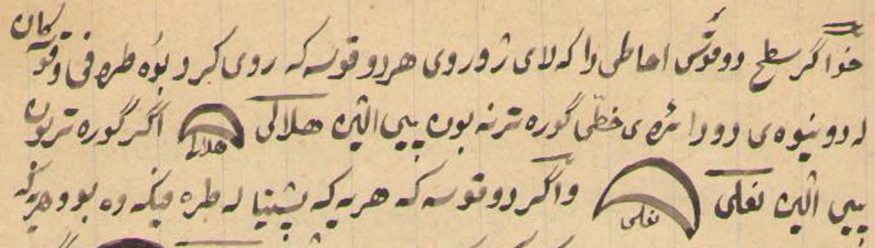 خوا گر سطح دو قوس احاطی دا که لای ژور وروی هر دو قوسه که روی کرد بوه طره فی و قوسه کان
له دو نیوه ی دو دائره ی خطی گوره تر نه بون پیی الێره هلاکی هلالی اگر گوره تر بون
پیی الێره نعلی نعلی و اگر دو قوسه که هر یه که پشتیا له طره فیکه وه بو و هر یکه